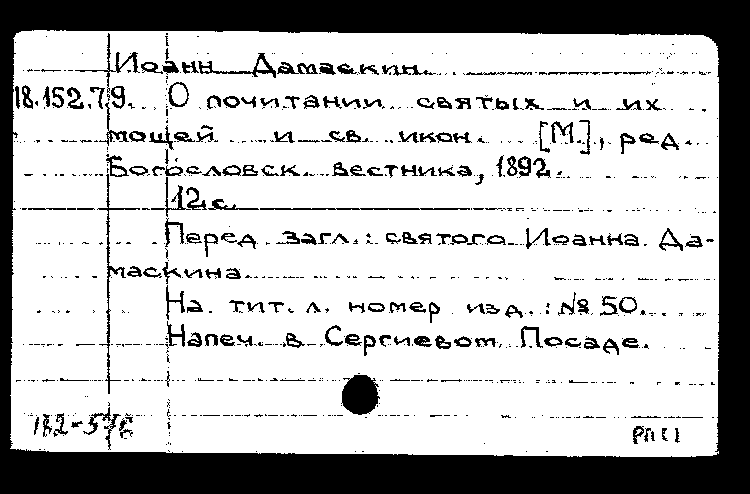 Иоанн Дамаскин.
18.152.7.9. О почитании святых и их
мощей и св. икон. [М.], ред.
Богословск. вестника, 1892.
12 с.
Перед загл.: святого Иоанна Да-
маскина.
На тит. л. номер изд.: № 50.
Напеч. в Сергиевом Посаде.